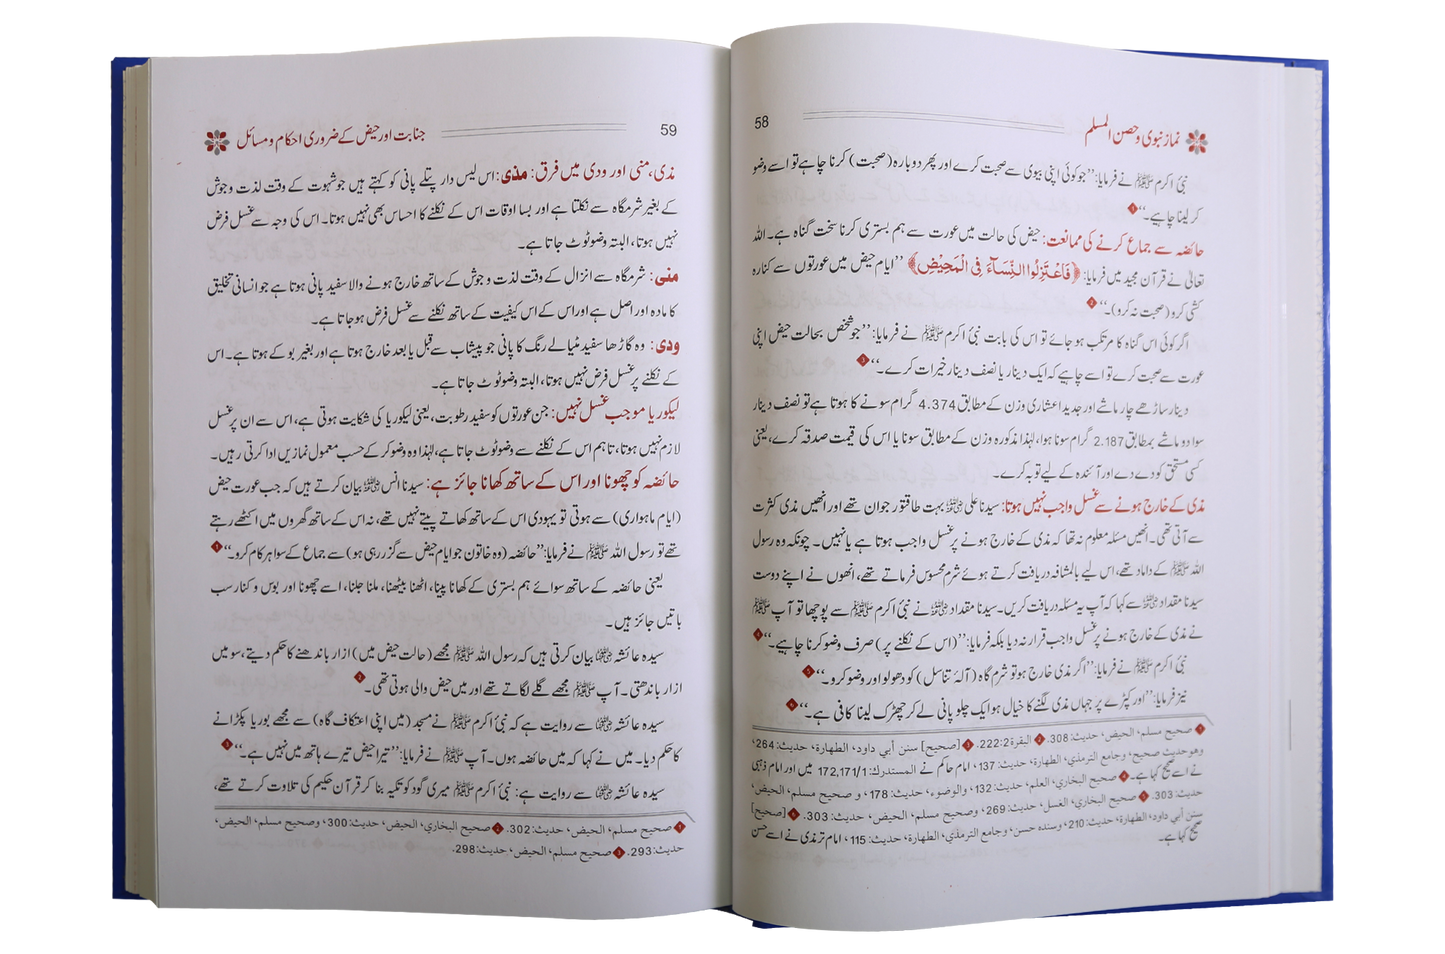 نماز نبوی وحصن المسلم 58
نبیٔ اکرم ﷺ نے فرمایا: ’’جو کوئی اپنی بیوی سے صحبت کرے اور پھر دوبارہ (صحبت) کرنا چاہے تو اسے وضو
کر لینا چاہیے۔‘‘
حائضہ سے جماع کرنے کی ممانعت: حیض کی حالت میں عورت سے ہم بستری کرنا سخت گناہ ہے۔ اللہ
تعالیٰ نے قرآن مجید میں فرمایا: ﴿فَاعْتَزِلُوا النِّسَآءَ فِی الْمَحِیْضِ﴾ ’’ایام حیض میں عورتوں سے کنارہ
کشی کرو (صحبت نہ کرو)۔‘‘
اگر کوئی اس گناہ کا مرتکب ہو جائے تو اس کی بابت نبیٔ اکرم ﷺ نے فرمایا: ’’جو شخص بحالت حیض اپنی
عورت سے صحبت کرے تو اسے چاہیے کہ ایک دینار یا نصف دینار خیرات کرے۔‘‘
دینار ساڑھے چار ماشے اور جدید اعشاری وزن کے مطابق 4.374 گرام سونے کا ہوتا ہے تو نصف دینار
سوا دو ماشے بمطابق 2.187 گرام سونا ہوا، لہٰذا مذکورہ وزن کے مطابق سونا یا اس کی قیمت صدقہ کرے، یعنی
کسی مستحق کو دے دے اور آئندہ کے لیے توبہ کرے۔
مذی کے خارج ہونے سے غسل واجب نہیں ہوتا: سیدنا علی رضی اللہ عنہ بہت طاقتور جوان تھے اور انھیں مذی کثرت
سے آتی تھی۔ انھیں مسئلہ معلوم نہ تھا کہ مذی کے خارج ہونے پر غسل واجب ہوتا ہے یا نہیں۔ چونکہ وہ رسول
اللہ ﷺ کے داماد تھے، اس لیے بالمشافہ دریافت کرتے ہوئے شرم محسوس فرماتے تھے، انھوں نے اپنے دوست
سیدنا مقداد رضی اللہ عنہ سے کہا کہ آپ یہ مسئلہ دریافت کریں۔ سیدنا مقداد رضی اللہ عنہ نے نبیٔ اکرم ﷺ سے پوچھا تو آپ ﷺ
نے مذی کے خارج ہونے پر غسل واجب قرار نہ دیا بلکہ فرمایا: ’’(اس کے نکلنے پر) صرف وضو کرنا چاہیے۔‘‘
نبیٔ اکرم ﷺ نے فرمایا: ’’اگر مذی خارج ہو تو شرم گاہ (آلۂ تناسل) کو دھو لو اور وضو کرو۔‘‘
نیز فرمایا: ’’اور کپڑے پر جہاں مذی لگنے کا خیال ہو ایک چلو پانی لے کر چھڑک لینا کافی ہے۔‘‘
صحیح مسلم، الحیض، حدیث: 308. البقرة 2:222. [صحیح] سنن أبي داود، الطهارة، حدیث: 264،
وهو حدیث صحیح، وجامع الترمذي، الطهارة، حدیث: 137، امام حاکم نے المستدرك: 172,171/1 میں اور امام ذہبی
نے اسے صحیح کہا ہے۔ صحیح البخاري، العلم، حدیث: 132، والوضوء، حدیث: 178، و صحیح مسلم، الحیض،
حدیث: 303. صحیح البخاري، الغسل، حدیث: 269، وصحیح مسلم، الحیض، حدیث: 303. [صحیح]
سنن أبي داود، الطهارة، حدیث: 210، وسنده حسن، وجامع الترمذي، الطهارة، حدیث: 115، امام ترمذی نے اسے حسن
صحیح کہا ہے۔
59 جنابت اور حیض کے ضروری احکام و مسائل
مذی، منی اور ودی میں فرق: مذی: اس لیس دار پتلے پانی کو کہتے ہیں جو شہوت کے وقت لذت و جوش
کے بغیر شرمگاہ سے نکلتا ہے اور بسا اوقات اس کے نکلنے کا احساس بھی نہیں ہوتا۔ اس کی وجہ سے غسل فرض
نہیں ہوتا، البتہ وضو ٹوٹ جاتا ہے۔
منی: شرمگاہ سے انزال کے وقت لذت و جوش کے ساتھ خارج ہونے والا سفید پانی ہوتا ہے جو انسانی تخلیق
کا مادہ اور اصل ہے اور اس کے اس کیفیت کے ساتھ نکلنے سے غسل فرض ہو جاتا ہے۔
ودی: وہ گاڑھا سفید مٹیالے رنگ کا پانی جو پیشاب سے قبل یا بعد خارج ہوتا ہے اور بغیر بو کے ہوتا ہے۔ اس
کے نکلنے پر غسل فرض نہیں ہوتا، البتہ وضو ٹوٹ جاتا ہے۔
لیکوریا موجب غسل نہیں: جن عورتوں کو سفید رطوبت، یعنی لیکوریا کی شکایت ہوتی ہے، اس سے ان پر غسل
لازم نہیں ہوتا، تاہم اس کے نکلنے سے وضو ٹوٹ جاتا ہے، لہٰذا وہ وضو کر کے حسب معمول نمازیں ادا کرتی رہیں۔
حائضہ کو چھونا اور اس کے ساتھ کھانا جائز ہے: سیدنا انس رضی اللہ عنہ بیان کرتے ہیں کہ جب عورت حیض
(ایام ماہواری) سے ہوتی تو یہودی اس کے ساتھ کھاتے پیتے نہیں تھے، نہ اس کے ساتھ گھروں میں اکٹھے رہتے
تھے تو رسول اللہ ﷺ نے فرمایا: ’’حائضہ (وہ خاتون جو ایام حیض سے گزر رہی ہو) سے جماع کے سوا ہر کام کرو۔‘‘
یعنی حائضہ کے ساتھ سوائے ہم بستری کے کھانا پینا، اٹھنا بیٹھنا، ملنا جلنا، اسے چھونا اور بوس و کنار سب
باتیں جائز ہیں۔
سیدہ عائشہ رضی اللہ عنہا بیان کرتی ہیں کہ رسول اللہ ﷺ مجھے (حالت حیض میں) ازار باندھنے کا حکم دیتے، سو میں
ازار باندھتی۔ آپ ﷺ مجھے گلے لگاتے تھے اور میں حیض والی ہوتی تھی۔
سیدہ عائشہ رضی اللہ عنہا سے روایت ہے کہ نبیٔ اکرم ﷺ نے مسجد (میں اپنی اعتکاف گاہ) سے مجھے بوریا پکڑانے
کا حکم دیا۔ میں نے کہا کہ میں حائضہ ہوں۔ آپ ﷺ نے فرمایا: ’’تیرا حیض تیرے ہاتھ میں نہیں ہے۔‘‘
سیدہ عائشہ رضی اللہ عنہا سے روایت ہے: نبیٔ اکرم ﷺ میری گود کو تکیہ بنا کر قرآن حکیم کی تلاوت کرتے تھے،
صحیح مسلم، الحیض، حدیث: 302. صحیح البخاري، الحیض، حدیث: 300، وصحیح مسلم، الحیض،
حدیث: 293. صحیح مسلم، الحیض، حدیث: 298.